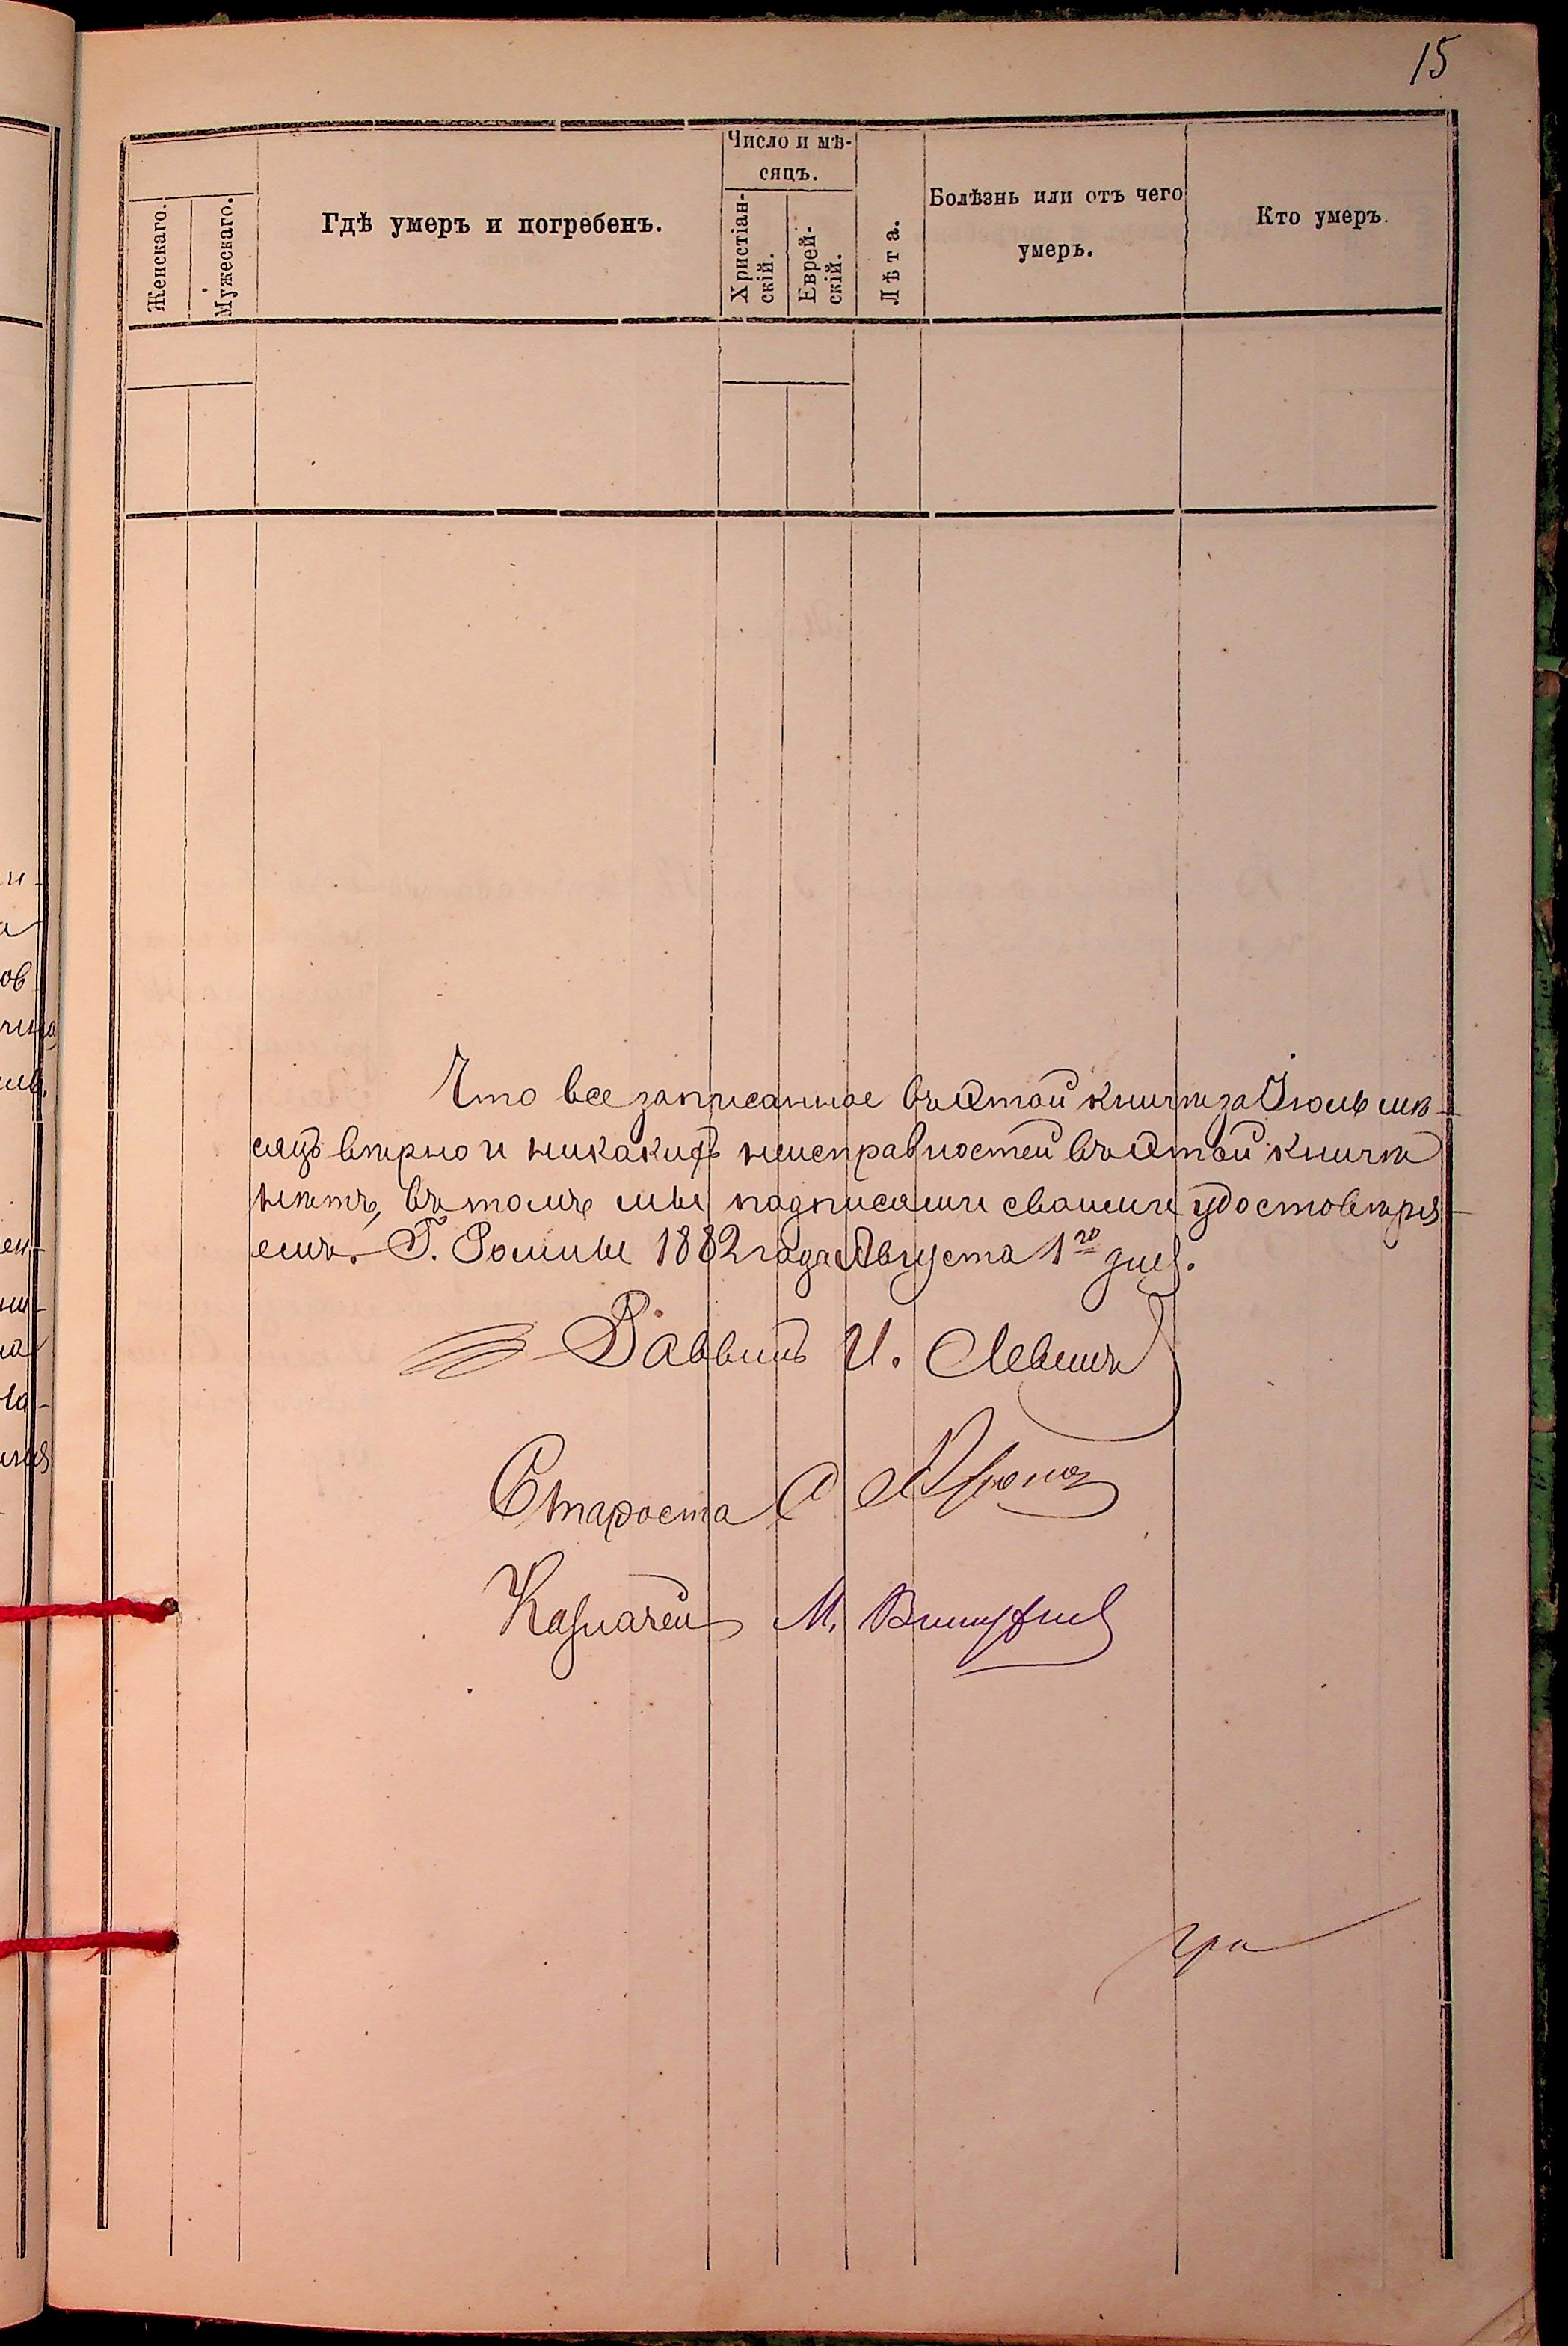 15
Число и мѣ-
сяцъ.
Женскаго.
Мужескаго.
Гдѣ умеръ и погребенъ.
Христіан-
скій.
Еврей-
скій.
Лѣта.
Болѣзнь или отъ чего
умеръ.
Кто умеръ.
Что все записанное въ этой книгѣ за Іюль мѣ-
сяцъ вѣрно и никакихъ неисправностей въ этой книгѣ
нѣтъ, въ томъ мы подписями своими удостовѣря-
емъ. Г. Ромны 1882 года Августа 1го дня.
Раввинъ И. Левинъ
Староста
Казначей М.